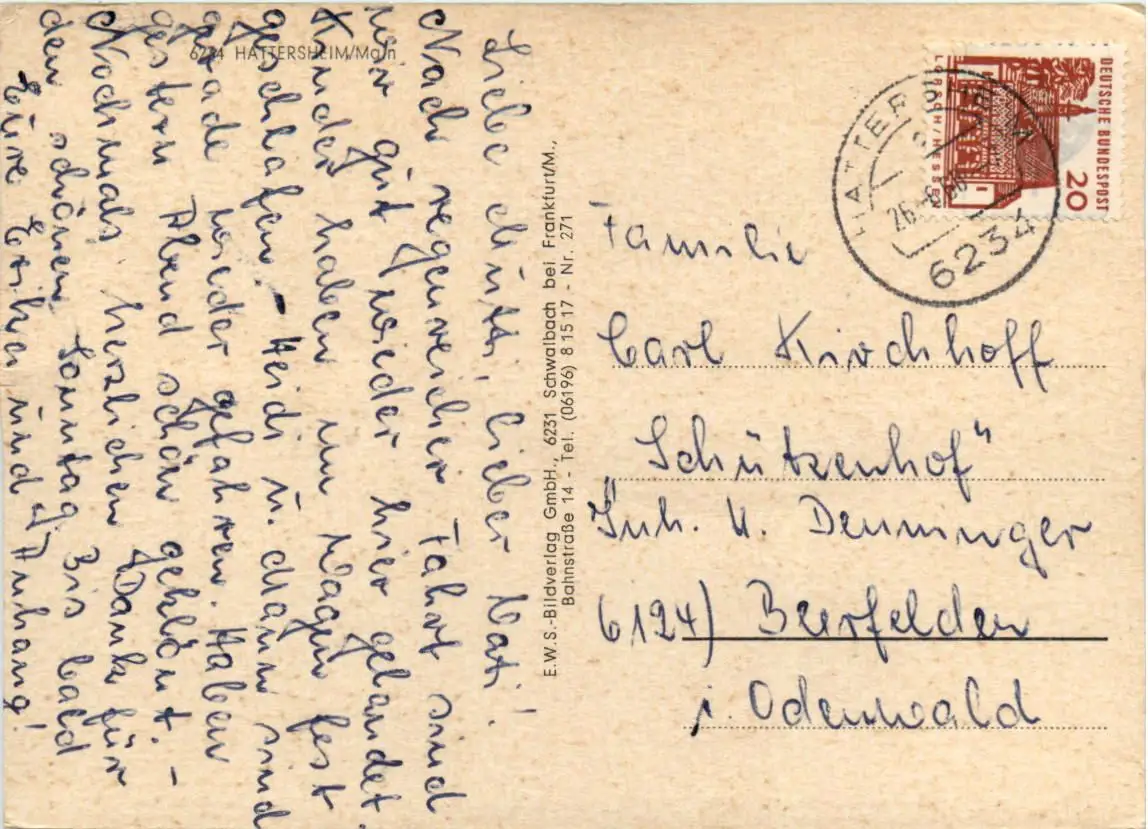 6234 HATTERSHEIM/Main
Liebe Mutti, lieber Vati!
Nach regenreicher Fahrt sind
wir gut wieder hier gelandet.
Kinder haben im Wagen fest
geschlafen. - Heidi u. Mann sind
gerade wieder gefahren. Haben
gestern Abend schön geklönt. -
Nochmals herzlichen Dank für
den schönen Sonntag. Bis bald
Eure und Anhang!
E.W.S.-Bildverlag GmbH., 6231 Schwalbach bei Frankfurt/M.,
Bahnstraße 14 - Tel. (06196) 81517 - Nr. 271
DEUTSCHE BUNDESPOST
20
LORSCH/HESSEN
6234
Familie
Carl Kirchhoff
"Schützenhof"
Inh. U. Denninger
6124) Beerfelden
i. Odenwald